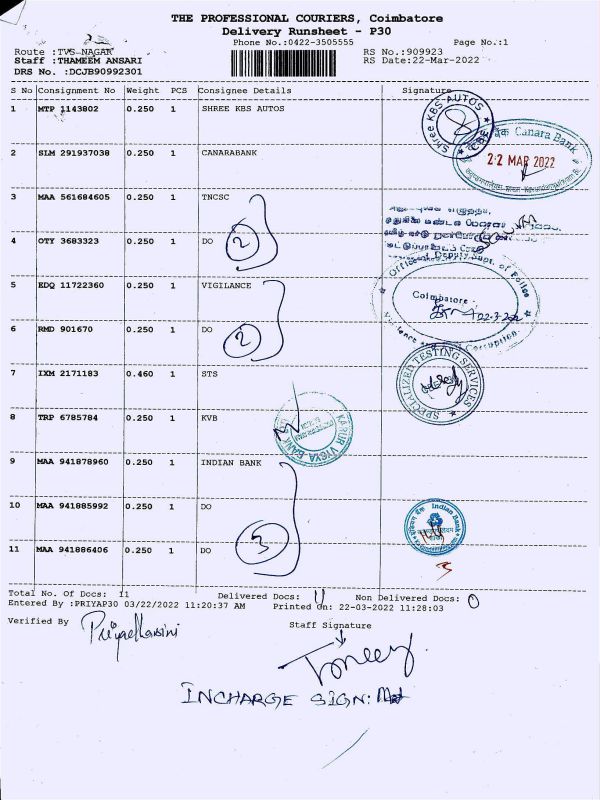 THE PROFESSIONAL COURIERS, Coimbatore
Delivery Runsheet - P30
Phone No.:0422-3505555
Page No.:1
Route :TVS-NAGAR
RS No.:909923
Staff :THAMEEM ANSARI
RS Date:22-Mar-2022
DRS No. :DCJB90992301
S No Consignment No Weight PCS Consignee Details Signature
1 MTP 1143802 0.250 1 SHREE KBS AUTOS
Shree KBS AUTOS
2 SLM 291937038 0.250 1 CANARABANK
Canara Bank
22 MAR 2022
3 MAA 561684605 0.250 1 TNCSC
4 OTY 3683323 0.250 1 DO
2
5 EDQ 11722360 0.250 1 VIGILANCE
Office of Deputy Supt. of Police
Coimbatore
6 RMD 901670 0.250 1 DO
2
7 IXM 2171183 0.460 1 STS
SPECIALIZED TESTING SERVICES
8 TRP 6785784 0.250 1 KVB
KARUR VYSYA BANK
9 MAA 941878960 0.250 1 INDIAN BANK
10 MAA 941885992 0.250 1 DO
Indian Bank
3
11 MAA 941886406 0.250 1 DO
3
Total No. Of Docs: 11 Delivered Docs: 11 Non Delivered Docs: 0
Entered By :PRIYAP30 03/22/2022 11:20:37 AM Printed On: 22-03-2022 11:28:03
Verified By
Staff Signature
INCHARGE SIGN: